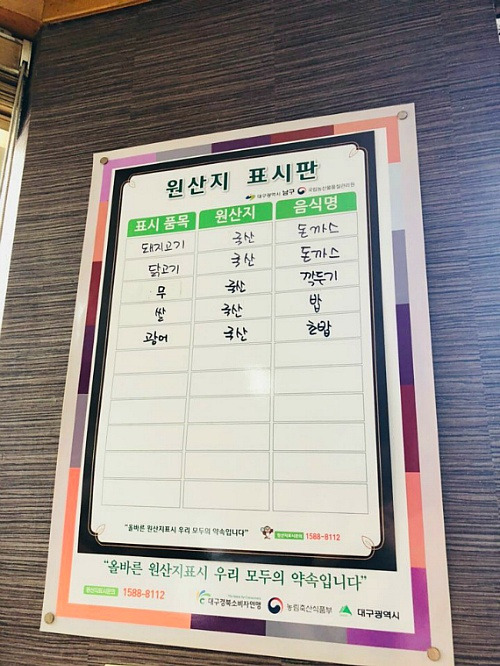 원산지 표시판
대구광역시 남구 국립농산물품질관리원
표시 품목 원산지 음식명
돼지고기 국산 돈까스
닭고기 국산 돈까스
무 국산 깍두기
쌀 국산 밥
광어 국산 초밥
"올바른 원산지표시 우리 모두의 약속입니다" 원산지표시문의 1588-8112
"올바른 원산지표시 우리 모두의 약속입니다"
원산지표시문의 1588-8112 대구경북소비자연맹 농림축산식품부 대구광역시